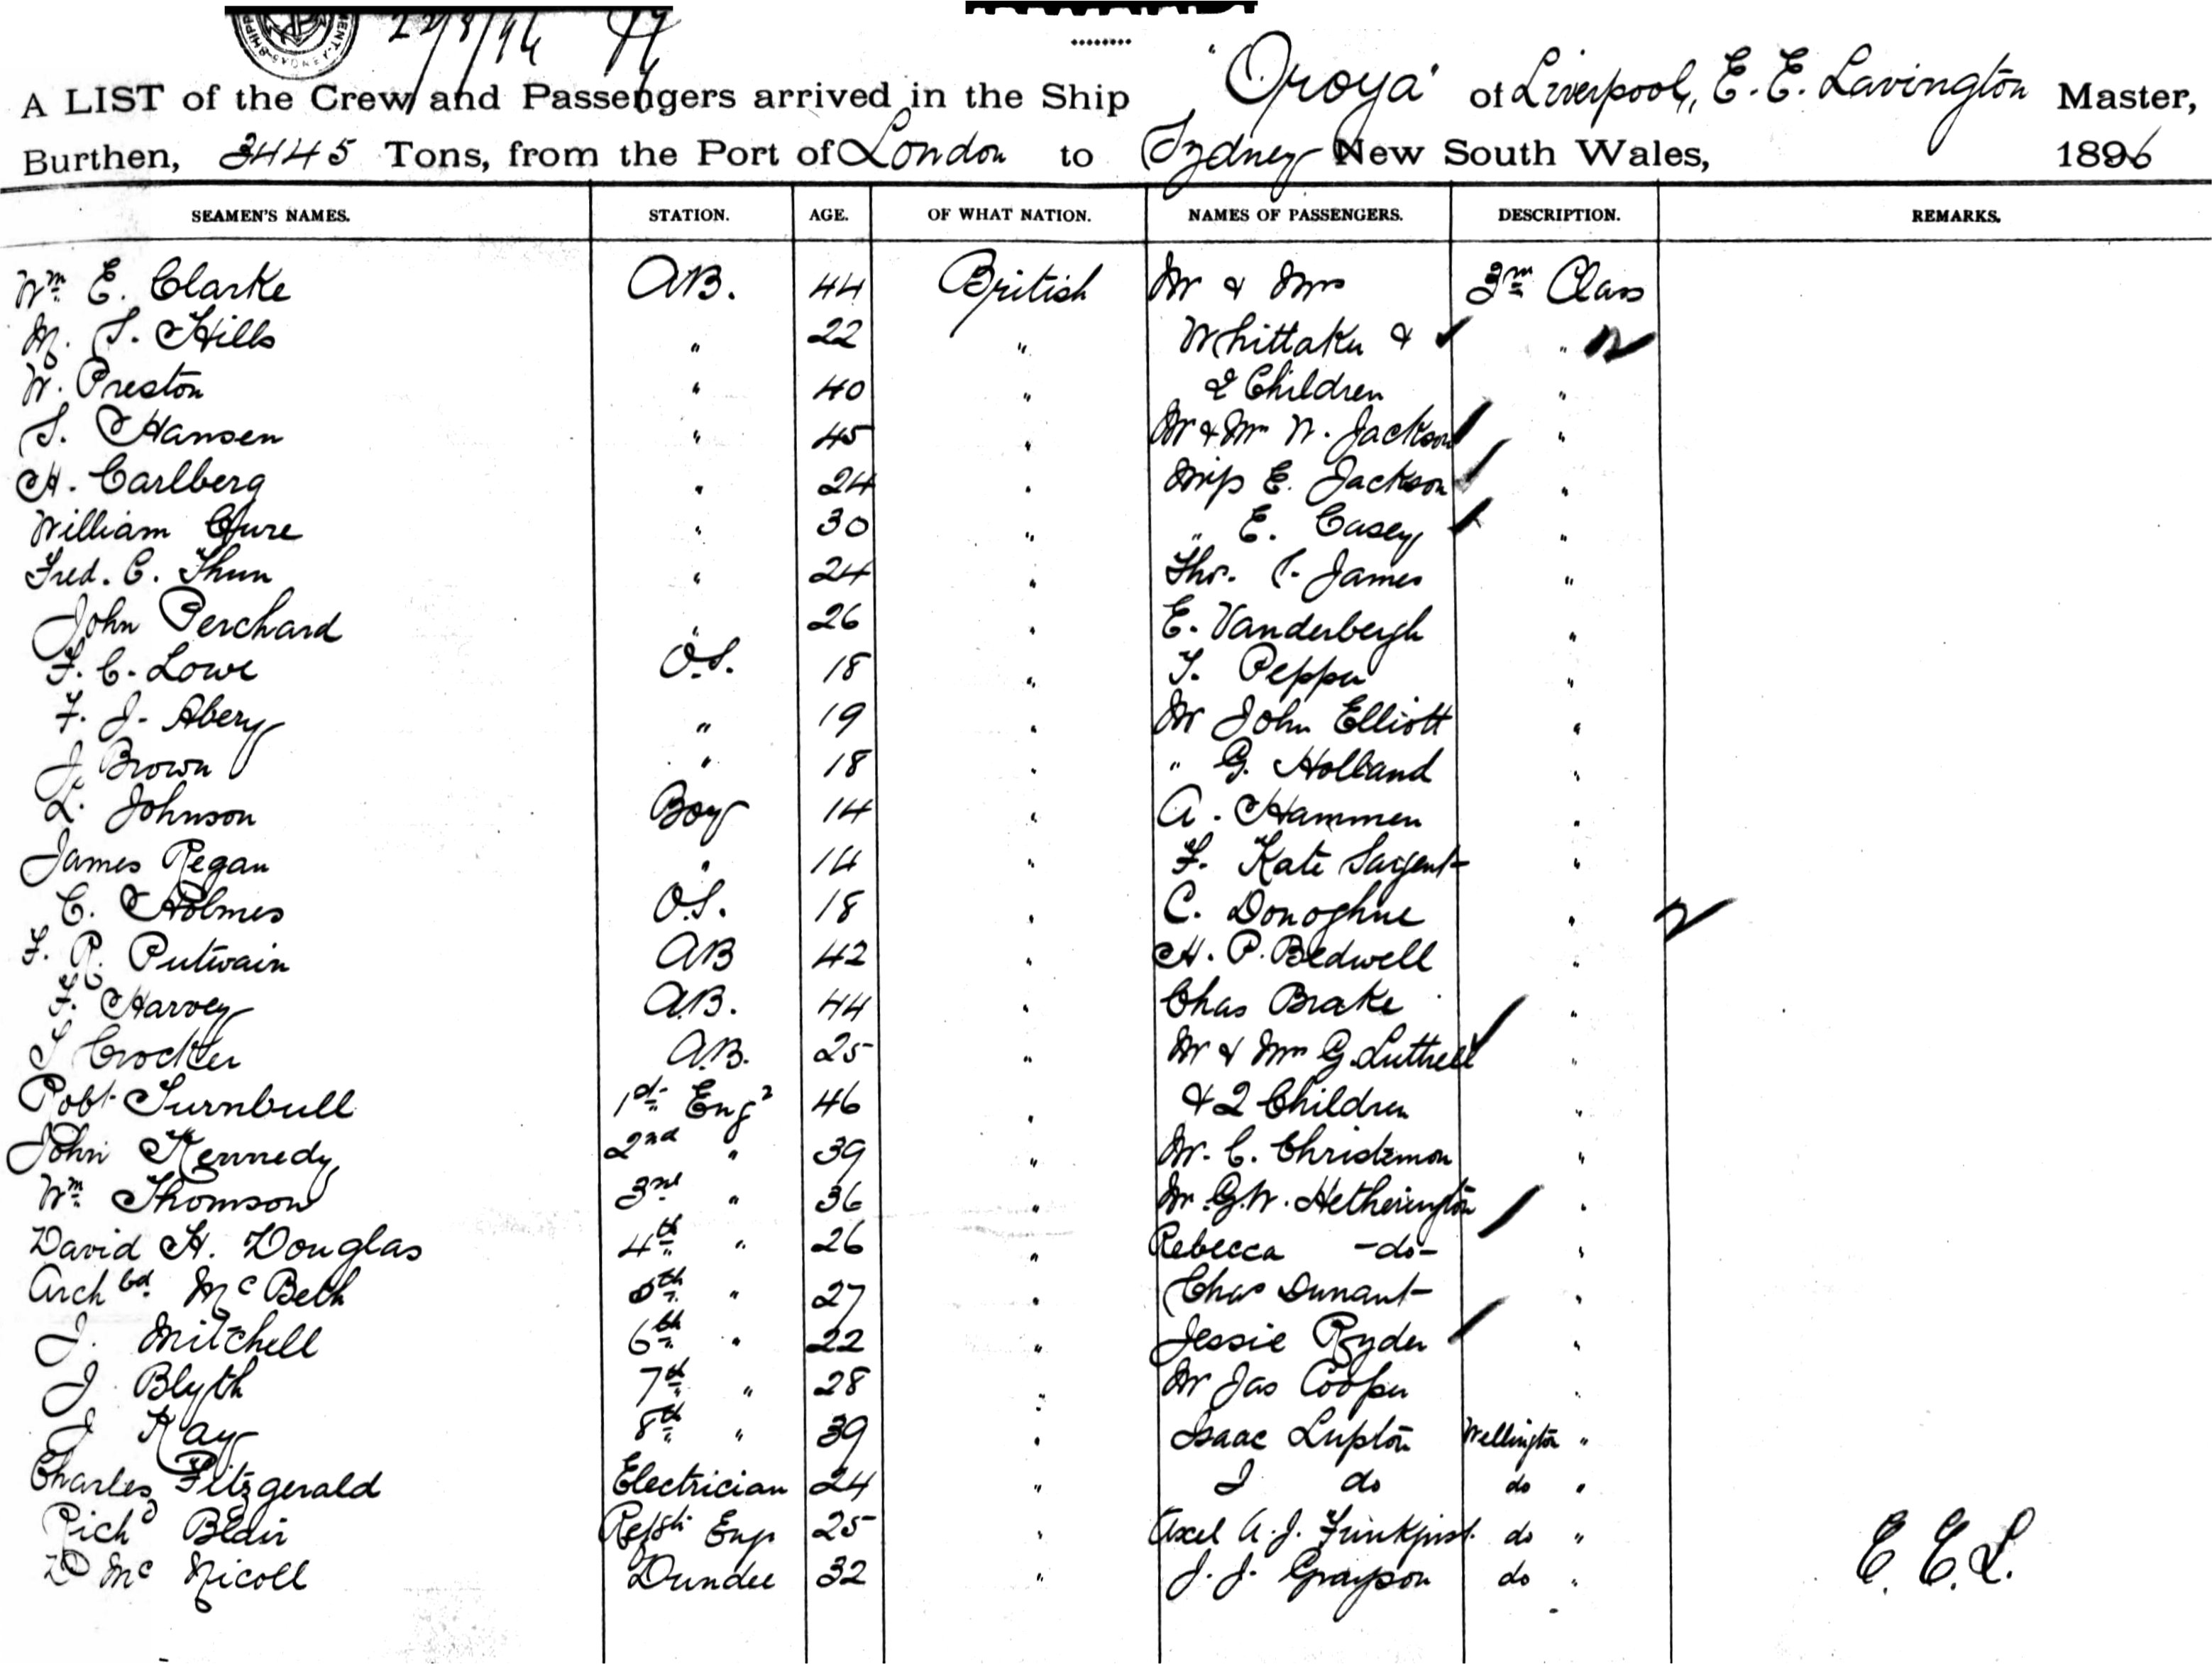 22/8/96
A LIST of the Crew and Passengers arrived in the Ship "Oroya" of Liverpool, E. E. Lavington Master,
Burthen, 3445 Tons, from the Port of London to Sydney New South Wales, 1896
SEAMEN'S NAMES. STATION. AGE. OF WHAT NATION. NAMES OF PASSENGERS. DESCRIPTION. REMARKS.
Wm E. Clarke A.B. 44 British Mr & Mrs 3rd Class
M. S. Hills " 22 " Whittaker & "
W. Preston " 40 " 2 Children "
S. Hansen " 45 " Mr & Mrs W. Jackson "
H. Carlberg " 24 " Miss E. Jackson "
William " 30 " " E. Casey "
Fred. C. Thun " 24 " Thos. James "
John Perchard " 26 " E. Vanderbergh "
F. C. Lowe O.S. 18 " T. Pepper "
F. J. Abery " 19 " Mr John Elliott "
J. Brown " 18 " " G. Holland "
L. Johnson Boy 14 " A. Hammen "
James Regan " 14 " F. Kate Sargent "
C. Holmes O.S. 18 " C. Donoghue "
F. R. Putwain AB 42 " H. P. Bedwell "
F. Harvey A.B. 44 " Chas Brake "
S Crocker A.B. 25 " Mr & Mrs G. Luttrell "
Robt Turnbull 1st Engr 46 " & 2 Children "
John Kennedy 2nd " 39 " Mr. C. Christemon "
Wm Thomson 3rd " 36 " Mr. G.W. Hetherington "
David H. Douglas 4th " 26 " Rebecca -do- "
Archbd McBeth 5th " 27 " Chas Dunant "
J. Mitchell 6th " 22 " Jessie Ryder "
J. Blyth 7th " 28 " Mr Jas Cooper "
J Kay 8th " 39 " Isaac Lupton Wellington "
Charles Fitzgerald Electrician 24 " J do do "
Richd Blair Eng 25 " Axel A. J. do "
D McNicoll Dundee 32 " J. J. Grayson do "
E. E. L.